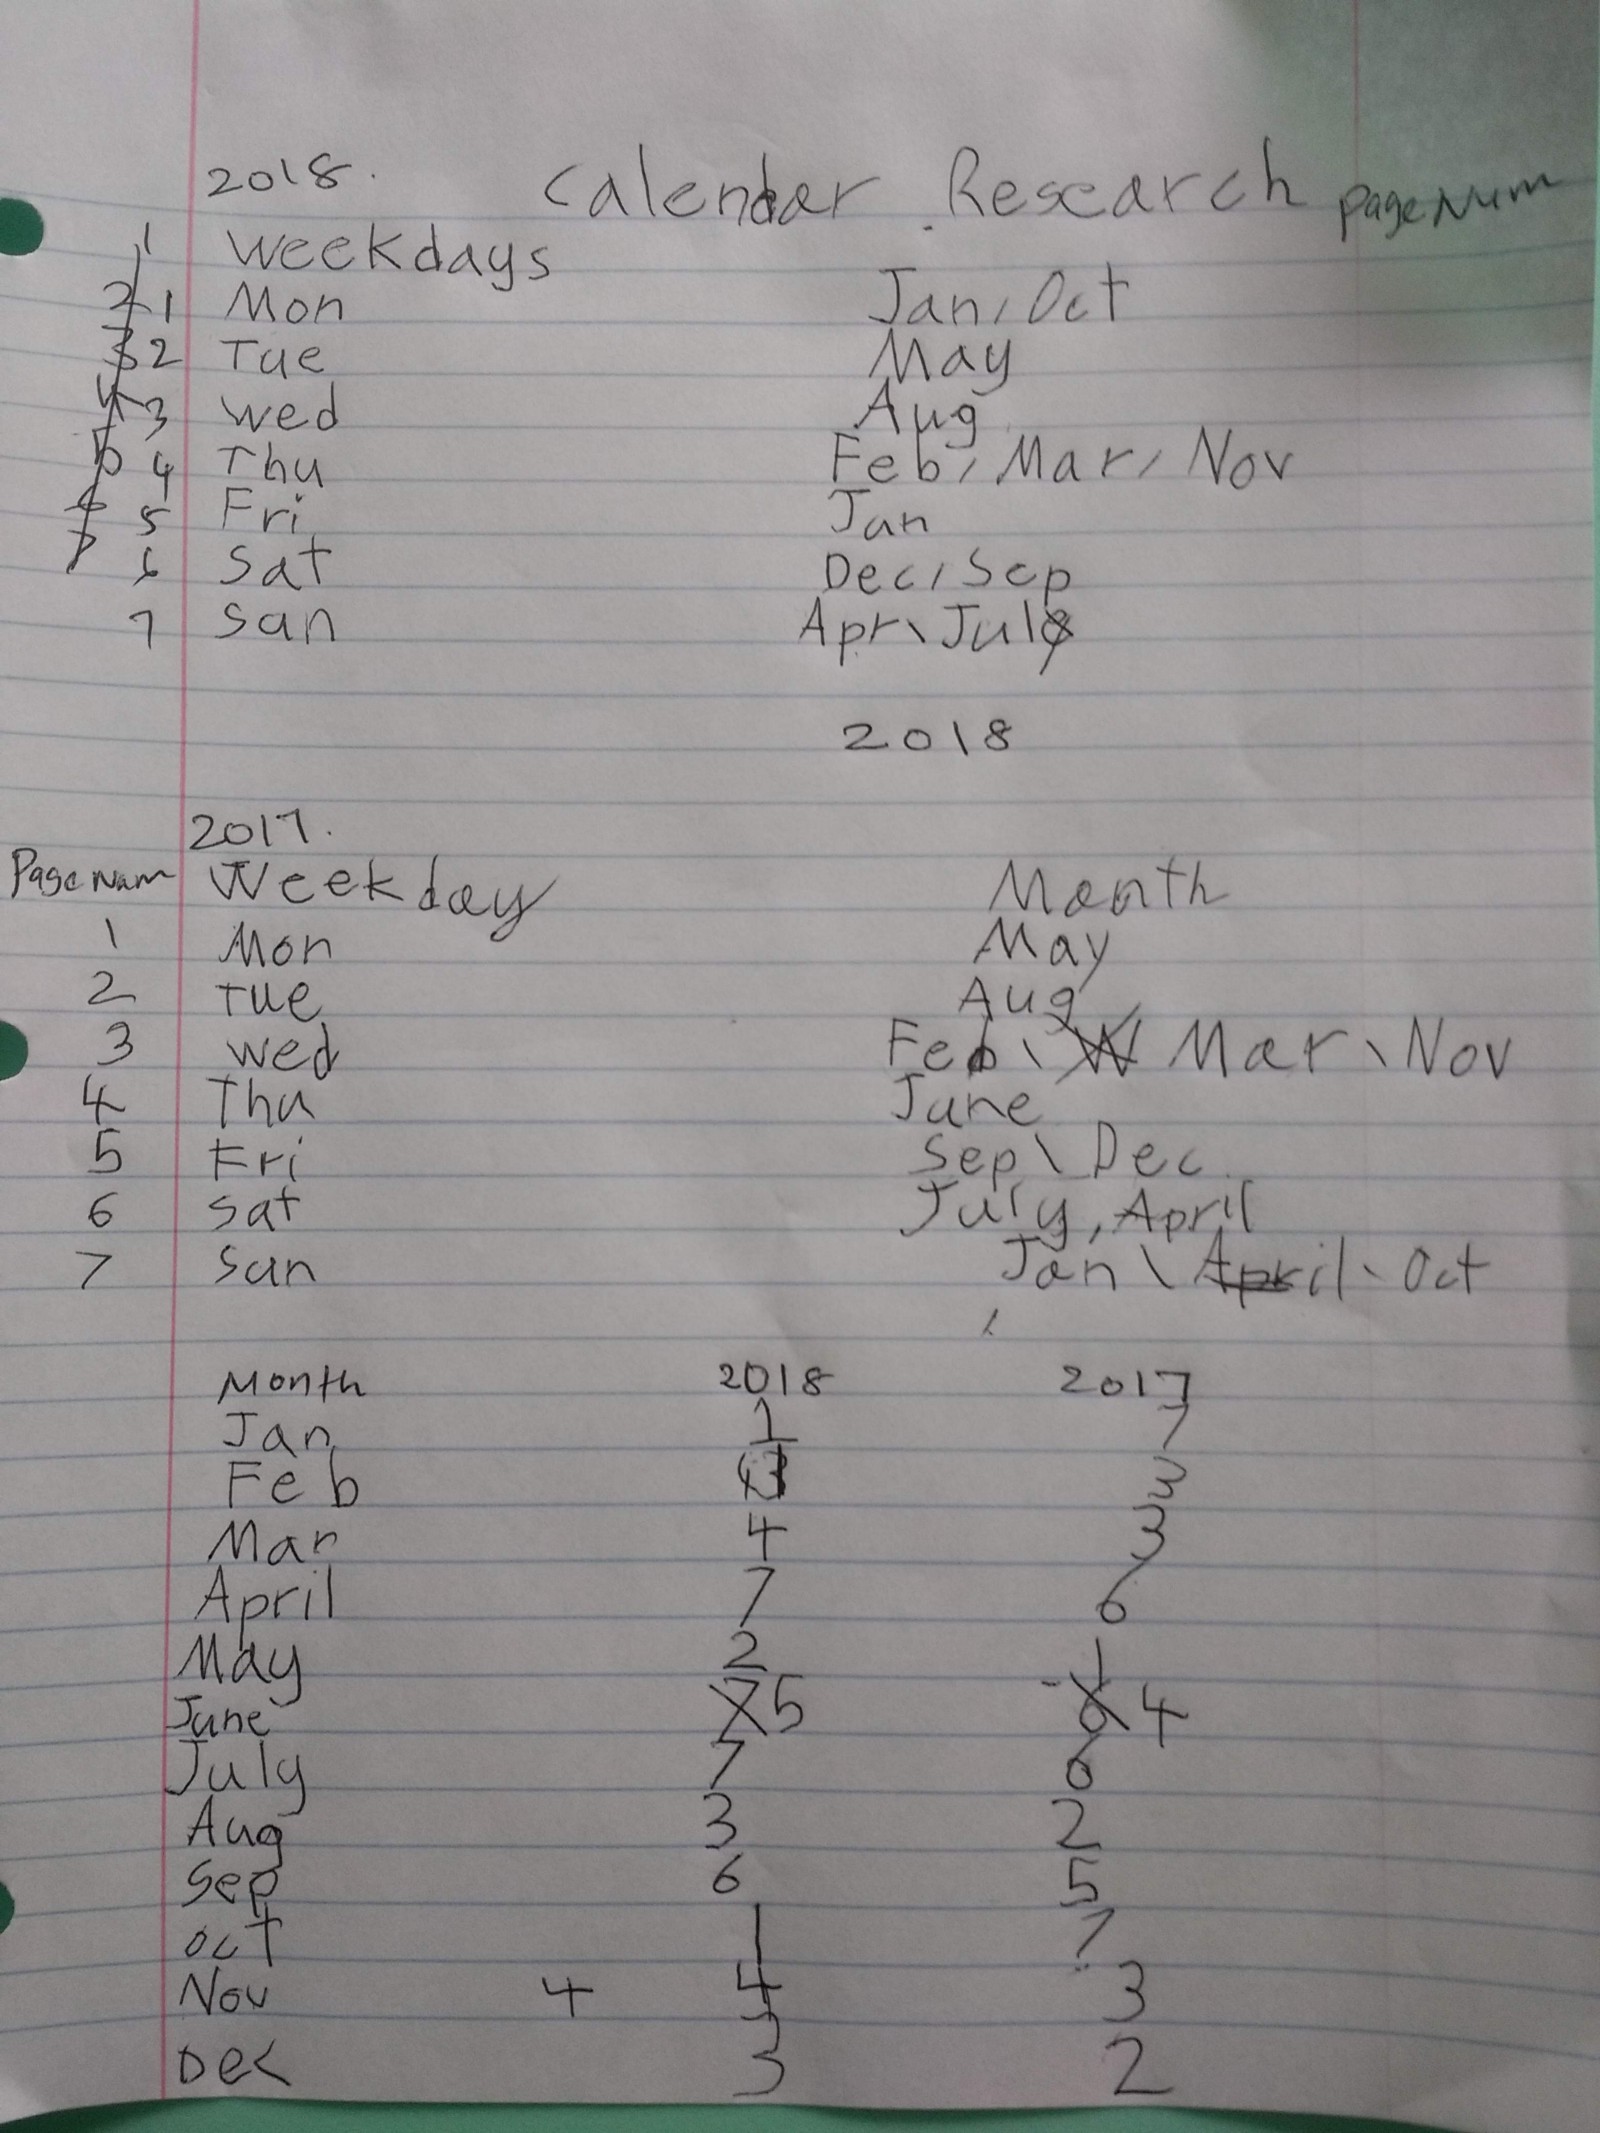 2018. Calendar Research Page Num
1 Weekdays
2 1 Mon Jan, Oct
3 2 Tue May
4 3 Wed Aug
5 4 Thu Feb, Mar, Nov
6 5 Fri Jan
7 6 Sat Dec, Sep
7 San Apr\July
2018
2017.
Page Num Weekday Month
1 Mon May
2 Tue Aug
3 Wed Feb \ Mar \ Nov
4 Thu June
5 Fri Sep \ Dec
6 Sat July, April
7 Sun Jan \ April \ Oct
Month 2018 2017
Jan 1 7
Feb 3
Mar 4 3
April 7 6
May 2 1
June 7 5 6 4
July 7 6
Aug 3 2
Sep 6 5
Oct 1 7
Nov 4 4 3
Dec 3 2